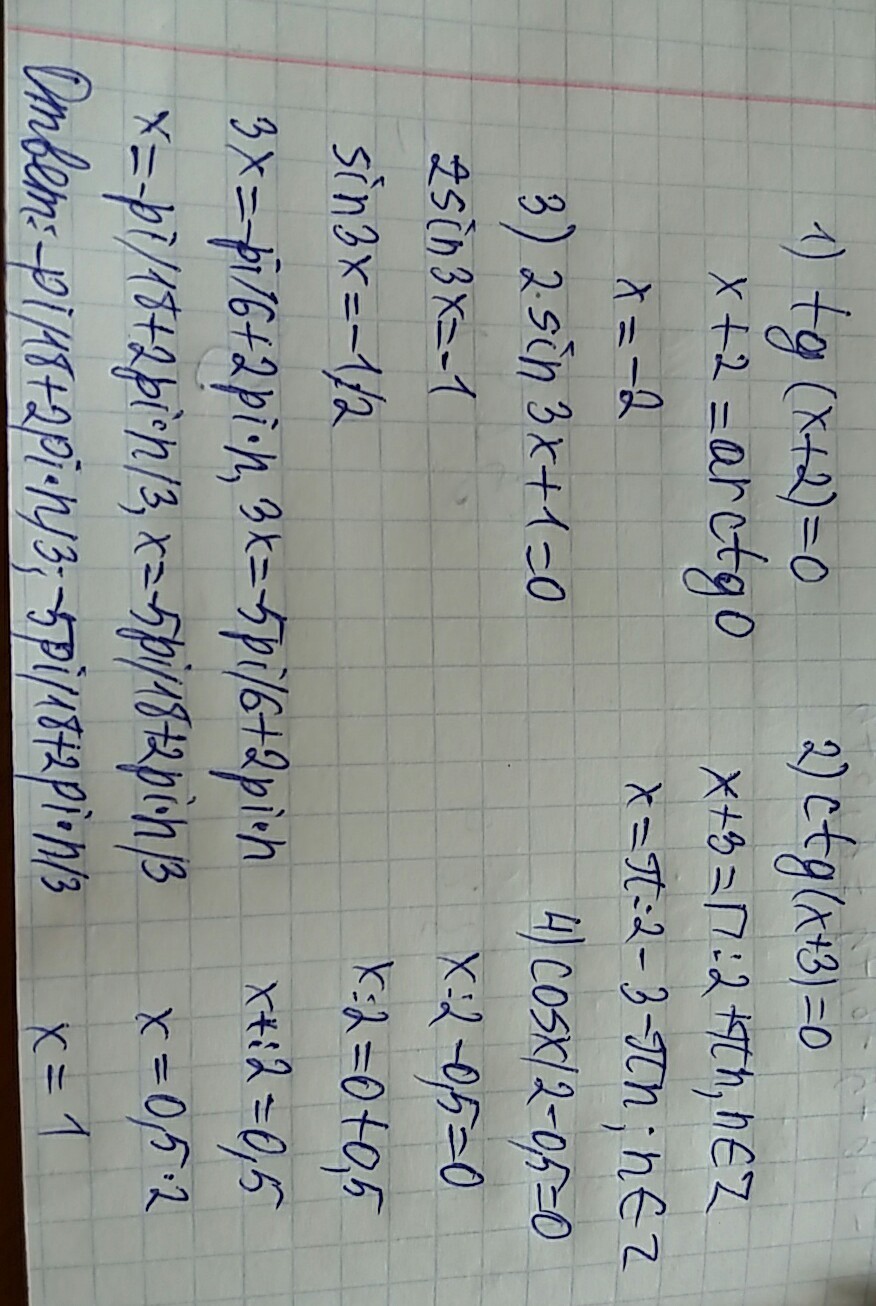 1) tg(x+2)=0
x+2=arctg0
x=-2
2) ctg(x+3)=0
x+3=П:2+πn, n∈Z
x=π:2-3-πn; n∈Z
3) 2·sin3x+1=0
2sin3x=-1
sin3x=-1/2
3x=-pi/6+2pi·n, 3x=-5pi/6+2pi·n
x=-pi/18+2pi·n/3, x=-5pi/18+2pi·n/3
Ответ: -pi/18+2pi·n/3; -5pi/18+2pi·n/3
4) cosx/2-0,5=0
x:2-0,5=0
x:2=0+0,5
x:2=0,5
x=0,5·2
x=1